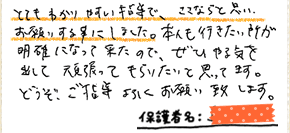 とてもわかりやすい指導で、ここならと思い
お願いする事にしました。本人も行きたい所が
明確になって来たので、ぜひやる気を
出して 頑張ってもらいたいと思ってます。
どうぞ、ご指導 よろしくお願い致します。
保護者名: